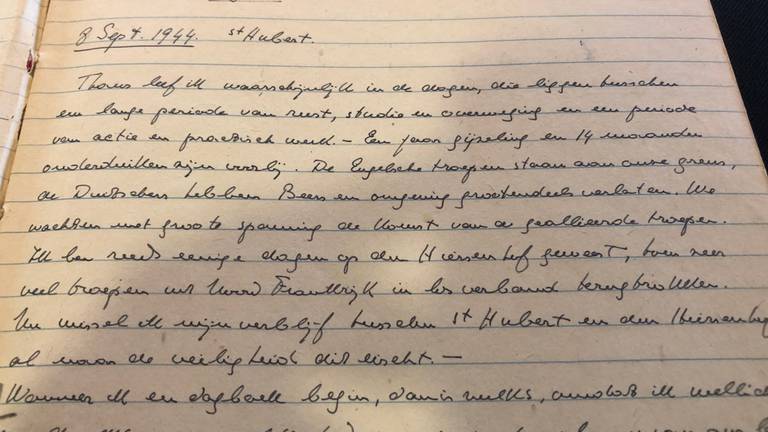 8 Sept. 1944. St Hubert.
Thans leef ik waarschijnlijk in de dagen, die liggen tusschen
een lange periode van rust, studie en overweging en een periode
van actie en practisch werk. – Een jaar gijzeling en 14 maanden
onderduiken zijn voorbij. De Engelsche troepen staan aan onze grens,
de Duitschers hebben Beers en omgeving grootendeels verlaten. We
wachten met groote spanning de komst van de geallieerde troepen.
Ik ben reeds eenige dagen op den geweest, toen zeer
veel troepen uit Noord Frankrijk in los verband terugtrokken.
Nu wissel ik mijn verblijf tusschen St Hubert en den
al naar de veiligheid dit eischt. –
Wanneer ik een dagboek begin, dan is zulks, omdat ik